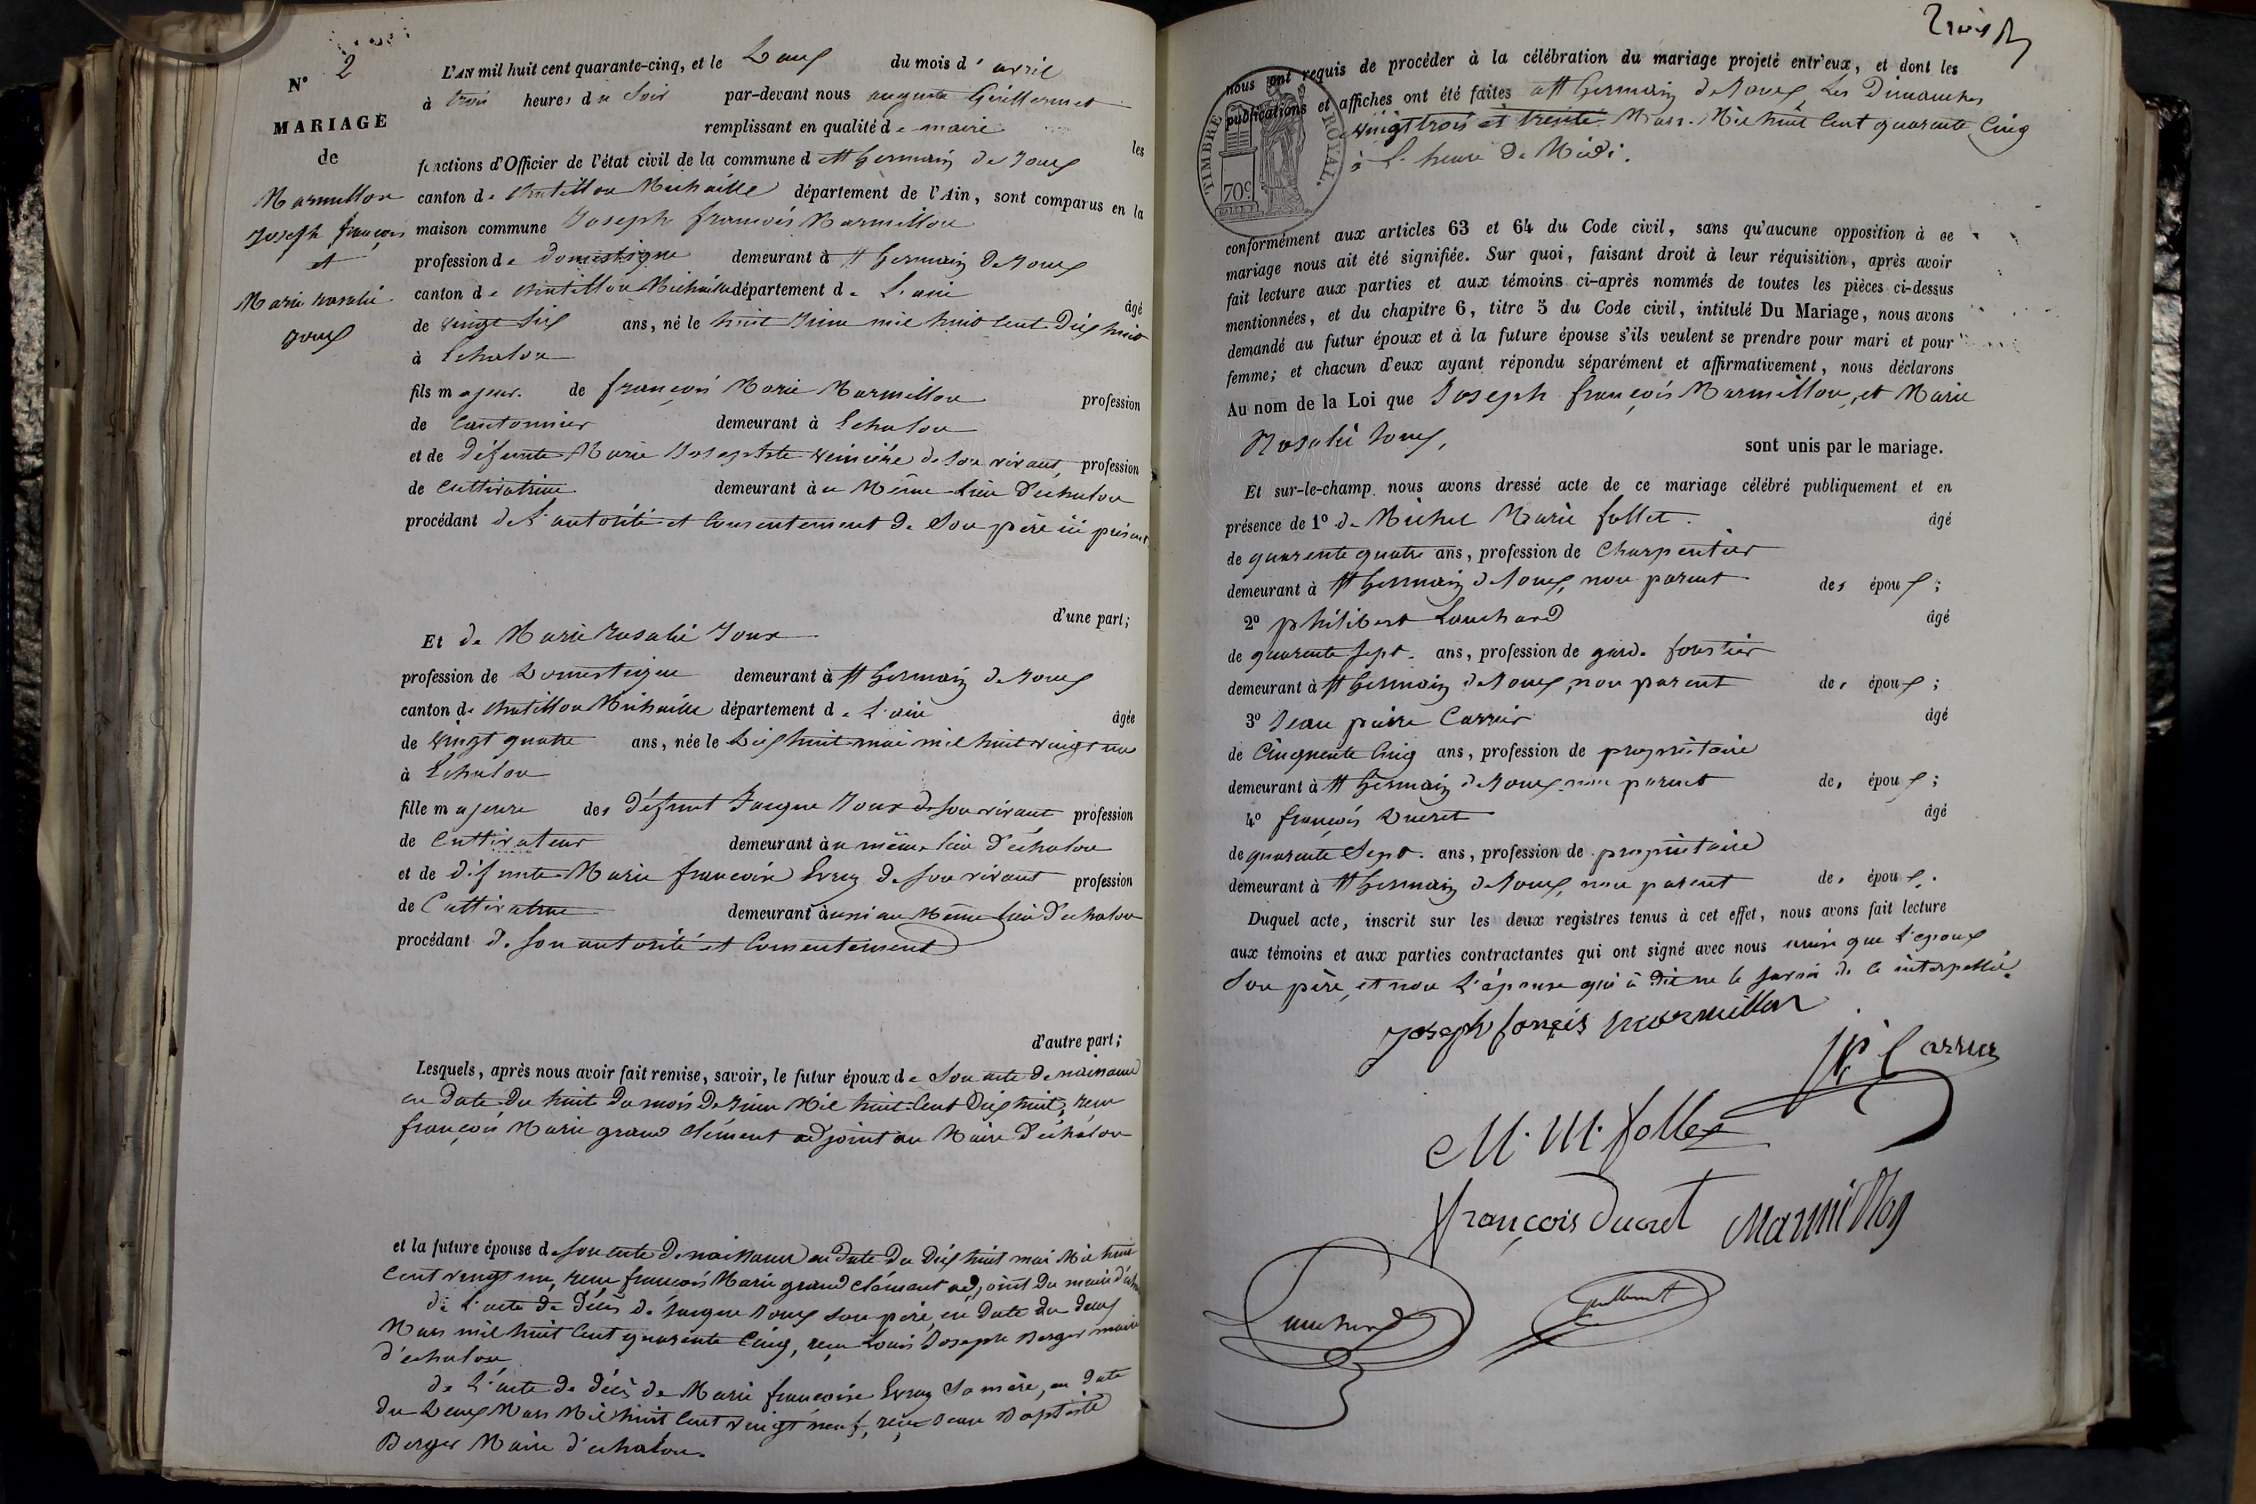 N° 2
MARIAGE
de
Marmillon
Joseph françois
et
Marie rosalie
Joux
L'AN mil huit cent quarante-cinq, et le Deux du mois d'avril
à trois heures du Soir par-devant nous auguste Guillermet
remplissant en qualité de maire les
fonctions d'Officier de l'état civil de la commune d St Germain de Joux
canton de Chatillon Michaille département de l'Ain, sont comparus en la
maison commune Joseph françois Marmillon
profession de domestique demeurant à St Germain de Joux
canton de Chatillon Michaille département de L'ain âgé
de vingt six ans, né le huit Juin mil huit cent Dix huit
à Echalon
fils majeur de françois Marie Marmillon profession
de Cantonnier demeurant à Echalon
et de défunte Marie Josephte de son vivant profession
de Cultivatrice demeurant à u Même lieu d'échalon
procédant de L'autorité et Consentement de Son père ici présent
d'une part;
Et de Marie rosalie Joux
profession de Domestique demeurant à St Germain de Joux
canton de Chatillon Michaille département de L'ain âgée
de vingt quatre ans, née le Dix huit mai mil huit vingt un
à Echalon
fille majeure des défunt Jacque Joux de son vivant profession
de Cultivateur demeurant à u même lieu d'échalon
et de défunte Marie françoise Evroy de son vivant profession
de Cultivatrice demeurant aussi au Même lieu d'echalon
procédant de son autorité et Consentement
d'autre part;
Lesquels, après nous avoir fait remise, savoir, le futur époux de Son acte de naissance
en date du huit du mois de Juin Mil huit Cent Dix huit, reçu
françois Marie grand Clément adjoint au Maire d'échalon
et la future épouse de son acte de naissance en date du Dix huit mai Mil huit
Cent vingt un, reçu françois Marie grand Clément adjoint du maire
de L'acte de décès de Jacque Joux son père, en date du deux
Mars mil huit Cent quarante Cinq, reçu Louis Joseph Berger maire
d'echalon
de L'acte de décès de Marie françoise Evroy Sa mère, en date
du Deux Mars Mil huit Cent vingt neuf, reçu Jean Baptiste
Berger Maire d'echalon.
nous ont requis de procéder à la célébration du mariage projeté entr'eux, et dont les
publications et affiches ont été faites a St Germain de Joux Les Dimanches
vingt trois et trente Mars Mil huit Cent quarante Cinq
à L'heure de Midi.
TIMBRE ROYAL.
70c
conformément aux articles 63 et 64 du Code civil, sans qu'aucune opposition à ce
mariage nous ait été signifiée. Sur quoi, faisant droit à leur réquisition, après avoir
fait lecture aux parties et aux témoins ci-après nommés de toutes les pièces ci-dessus
mentionnées, et du chapitre 6, titre 5 du Code civil, intitulé Du Mariage, nous avons
demandé au futur époux et à la future épouse s'ils veulent se prendre pour mari et pour
femme; et chacun d'eux ayant répondu séparément et affirmativement, nous déclarons
Au nom de la Loi que Joseph françois Marmillon, et Marie
Rosalie Joux, sont unis par le mariage.
Et sur-le-champ nous avons dressé acte de ce mariage célébré publiquement et en
présence de 1° de Michel Marie follet âgé
de quarente quatre ans, profession de Charpentier
demeurant à St Germain de Joux, non parent des époux;
2° philibert Louchard âgé
de quarente sept ans, profession de garde forestier
demeurant à St Germain de Joux, non parent des époux;
3° Jean pierre Carrier âgé
de Cinquente Cinq ans, profession de propriétaire
demeurant à St Germain de Joux, non parent des époux;
4° françois Ducret âgé
de quarente Sept ans, profession de propriétaire
demeurant à St Germain de Joux, non parent des époux.
Duquel acte, inscrit sur les deux registres tenus à cet effet, nous avons fait lecture
aux témoins et aux parties contractantes qui ont signé avec nous ainsi que L'epoux
Son père, et non L'épouse qui à dit ne le savoir de ce interpellé.
Joseph françois Marmillon
JP Carrier
M. M. follet
françois Ducret Marmillon
Louchard
Guillermet